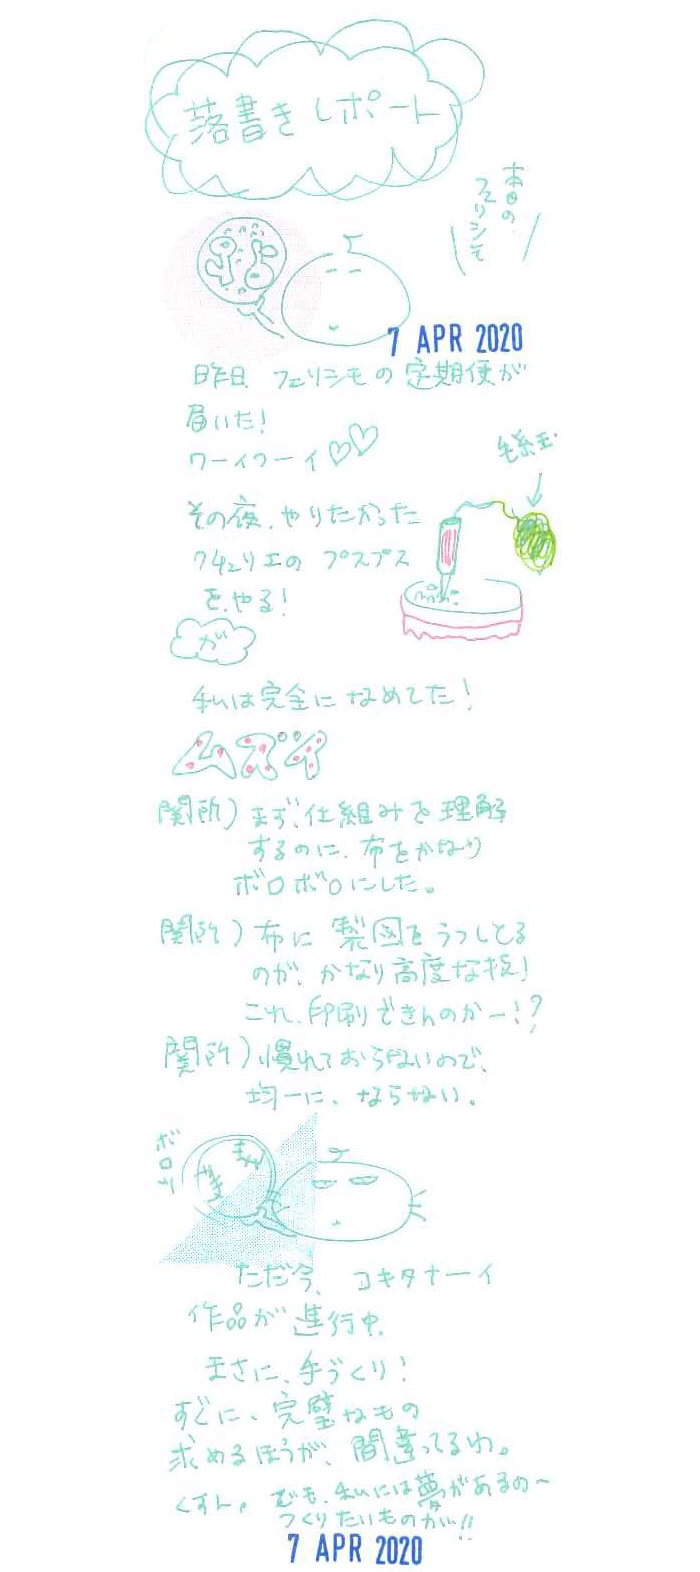 落書きレポート
本日の
フェリシモ
7 APR 2020
昨日、フェリシモの定期便が
届いた!
ワーイワーイ♡♡
毛糸玉
その夜、やりたかった
クチュリエの プスプス
を、やる!
が
私は完全になめてた!
ムズイ
関所)まず、仕組みを理解
するのに、布をかなり
ボロボロにした。
関所)布に製図をうつしとる
のが、かなり高度な技!
これ、印刷できんのかー!?
関所)慣れておらないので、
均一に、ならない。
ボロッ
ただ今、コキタナーイ
作品が進行中。
まさに、手づくり!
すぐに、完璧なもの
求めるほうが、間違ってるわ。
くすん。でも、私には夢があるの〜
つくりたいものが!!
7 APR 2020